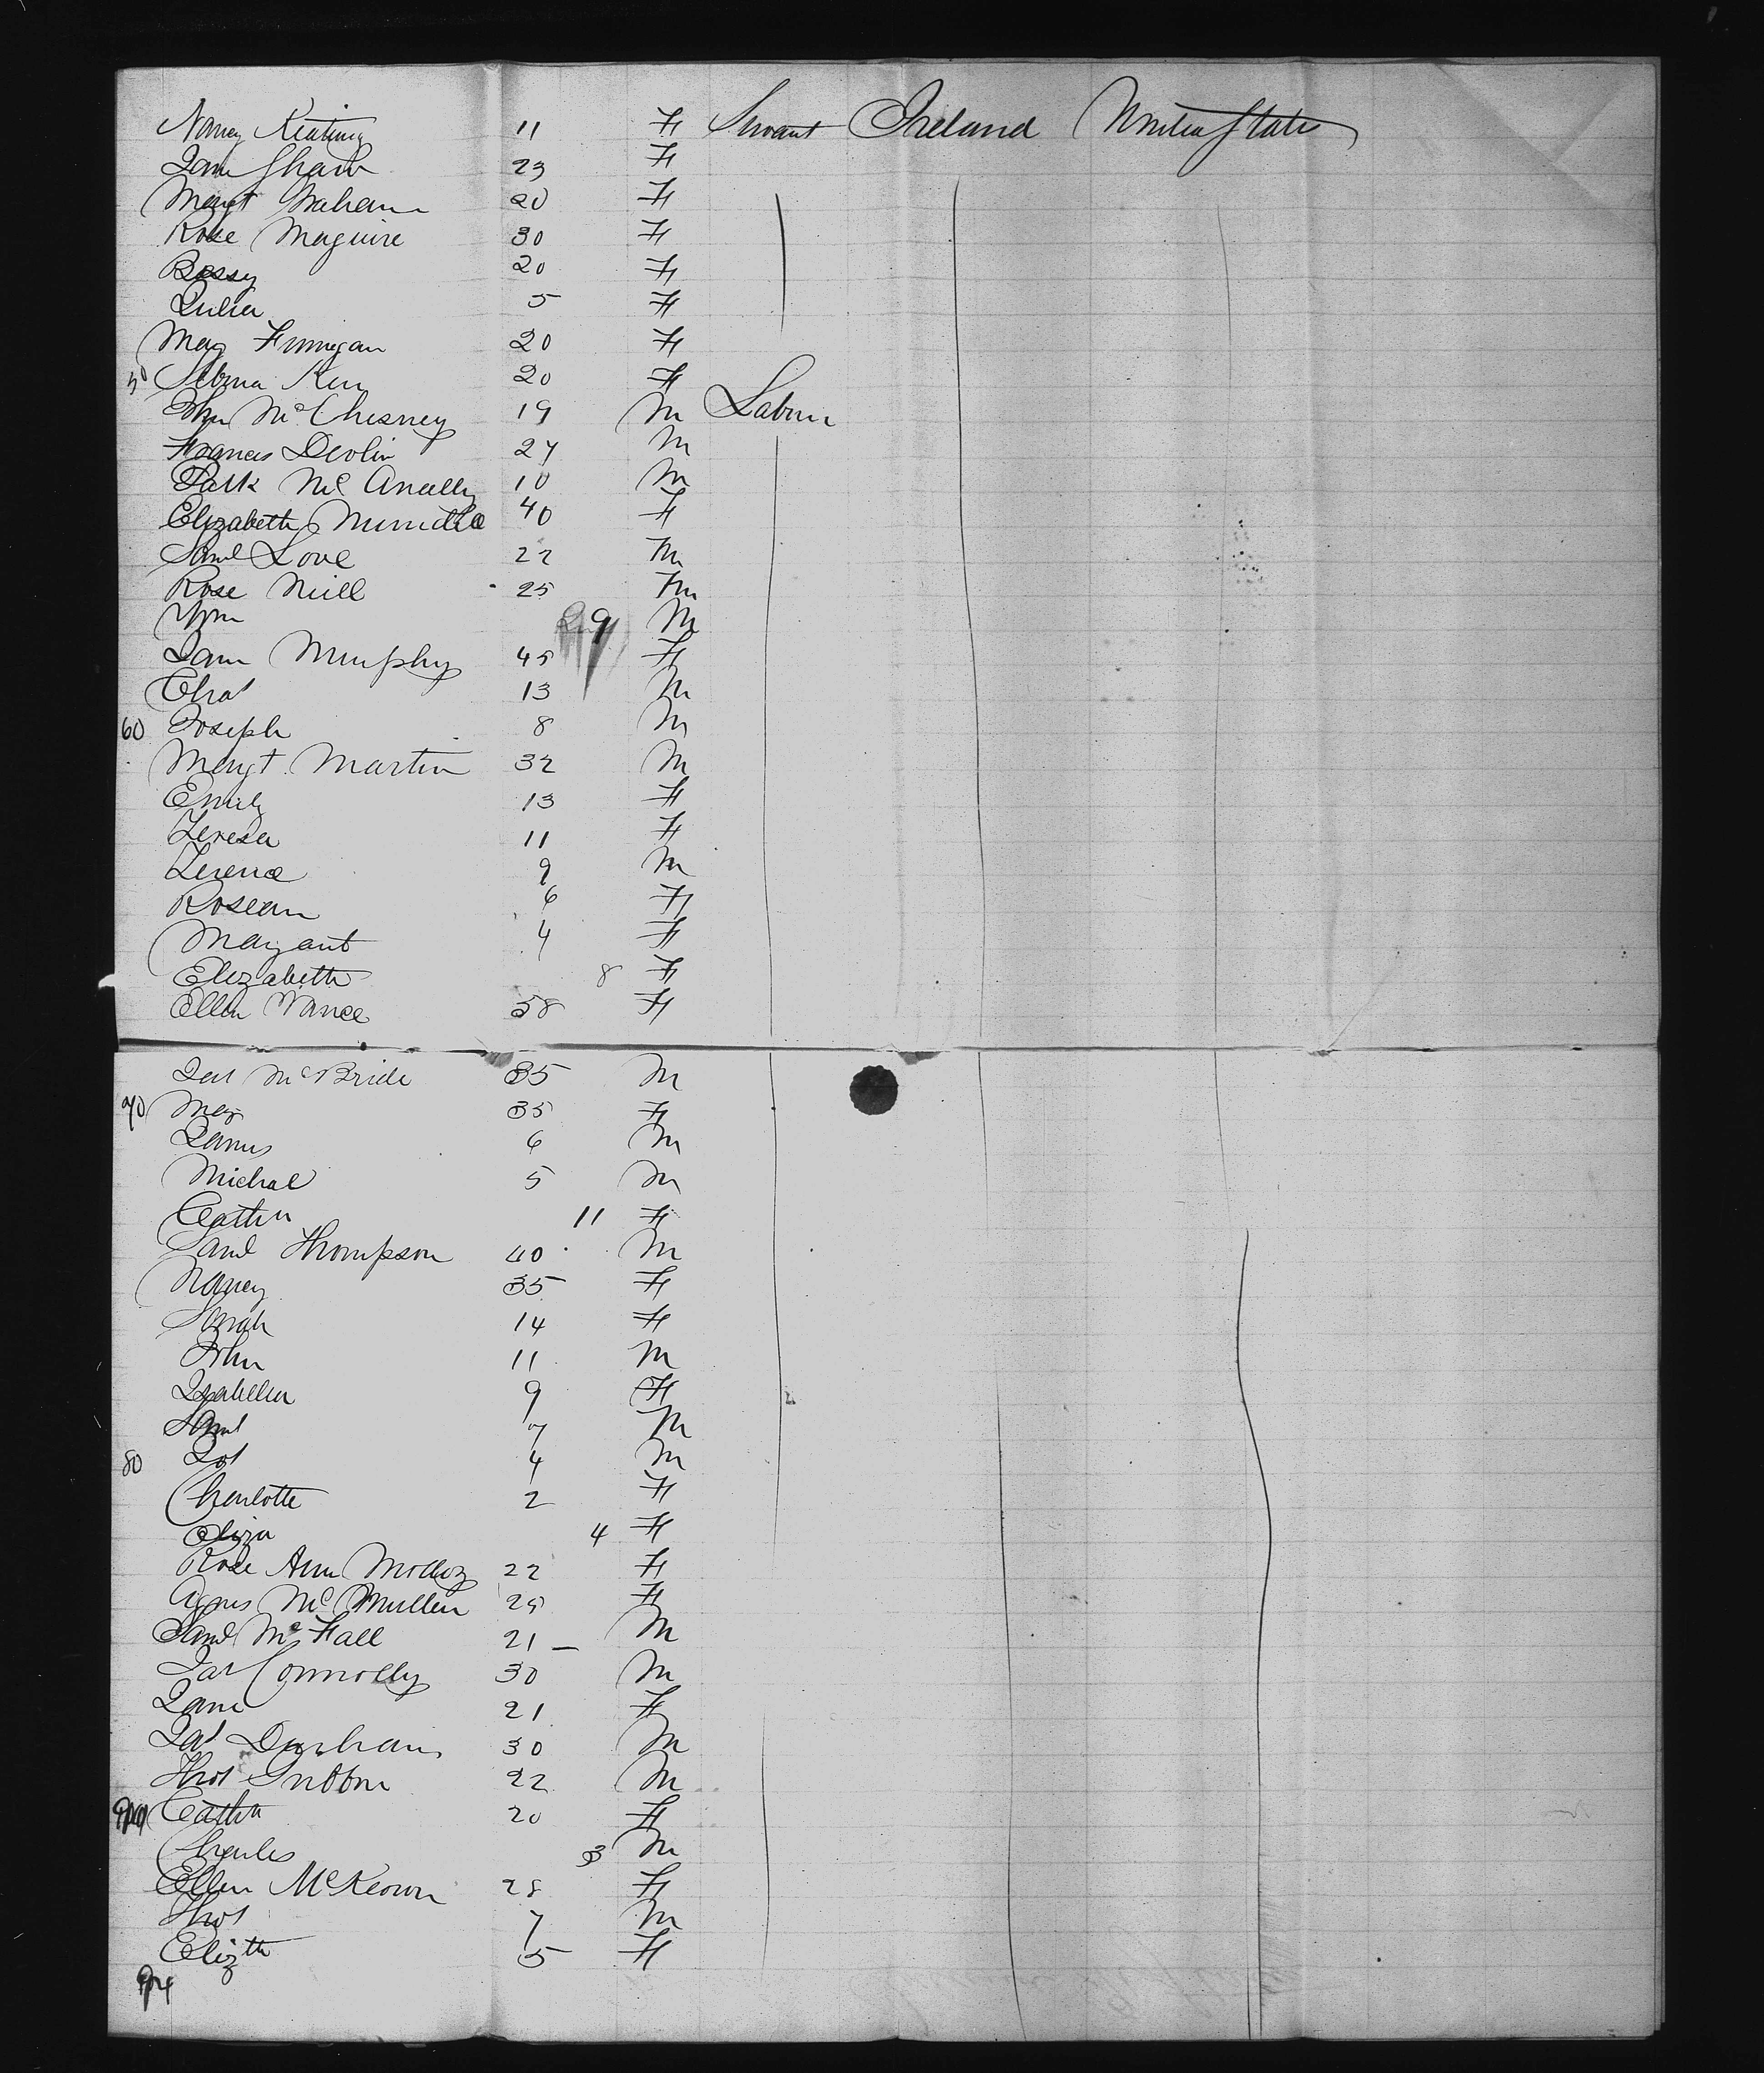 Nancy Keating 11 F Servant Ireland United States
Jane Shaw 23 F
Margt Graham 20 F
Rose Maguire 30 F
Bessy 20 F
Julia 5 F
Mary Finnigan 20 F
50 Selina Kerr 20 F
Jhn McChesney 19 M Labour
Francis Devlin 27 M
Patk McAnally 10 M
Elizabeth 40 F
Saml Love 22 M
Rose Neill 25 Fm
Wm 9 M
Jane Murphy 45 F
Chas 13 M
60 Joseph 8 M
Margt Martin 32 M
Emily 13 F
Teresa 11 F
Terence 9 M
Roseann 6 F
Margaret 4 F
Elizabeth 8 F
Ellen Vance 58 F
Jas McBride 35 M
70 Mary 35 F
James 6 M
Michael 5 M
Cathn 11 F
Saml Thompson 40 M
Nancy 35 F
Sarah 14 F
John 11 M
Isabella 9 F
Saml 7 M
80 Jos 4 M
Charlotte 2 F
Eliza 4 F
Rose Ann Molloy 22 F
Agnes McMullen 25 F
Saml McFall 21 — M
Jas Connolly 30 M
Jane 21 F
Jas Durham 30 M
Thos Gribbon 22 M
90 Cathn 20 F
Charles 3 M
Ellen McKeown 28 F
Thos 7 M
Elizth 5 F
94